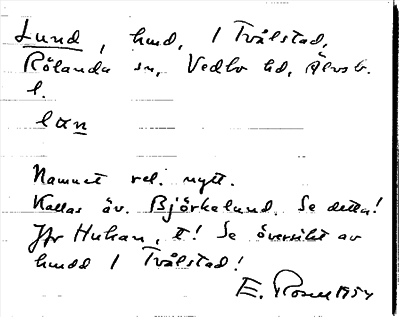 Lund, hmd, 1 Tvålstad,
Rölanda sn, Vedbo hd, Älvsb.
l.
lɵn
Namnet rel. nytt.
Kallas äv. Björkelund. Se detta!
Jfr Hukan, t! Se översikt av
hmdd 1 Tvålstad!
E. Rosell 1954